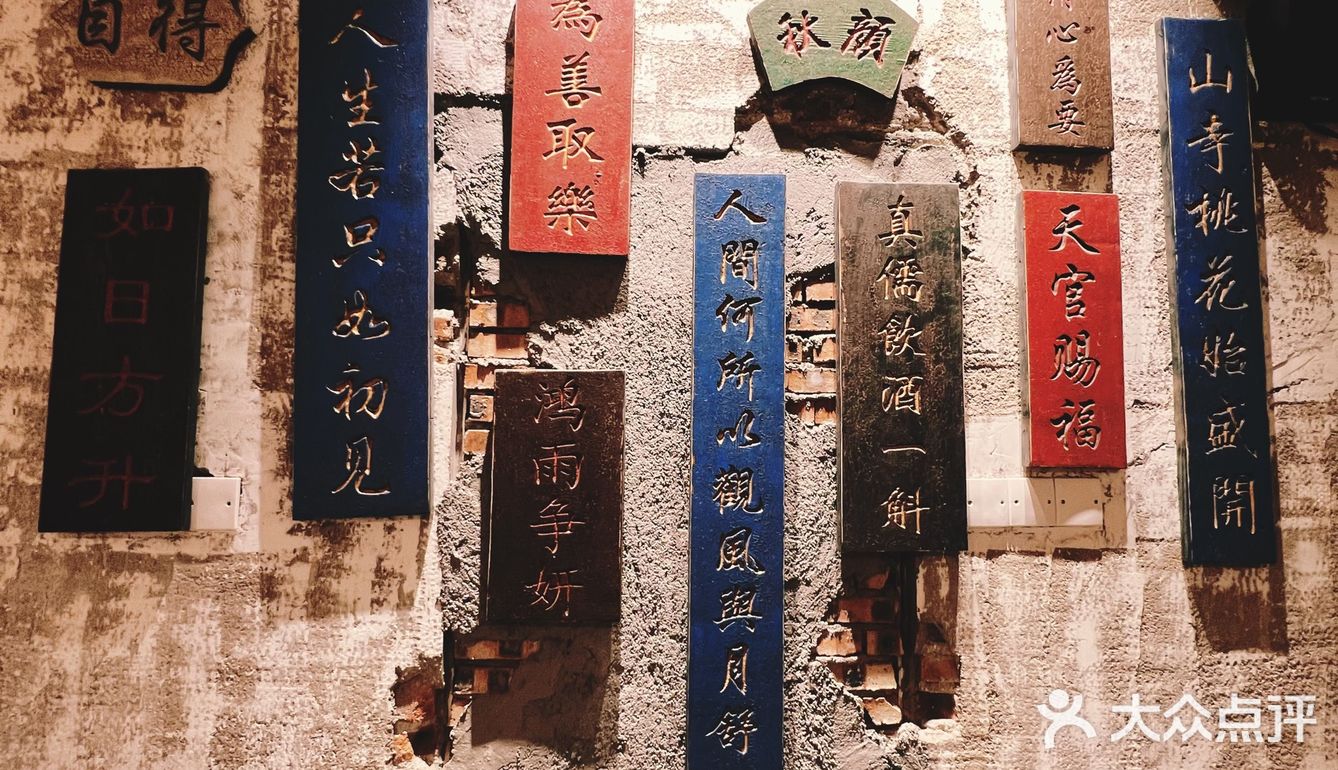 自得
如日方升
人生若只如初见
為善取樂
鸿雨争妍
人間何所以觀風與月舒
真儒飲酒一斛
心爲要
天官赐福
山寺桃花始盛開
大众点评